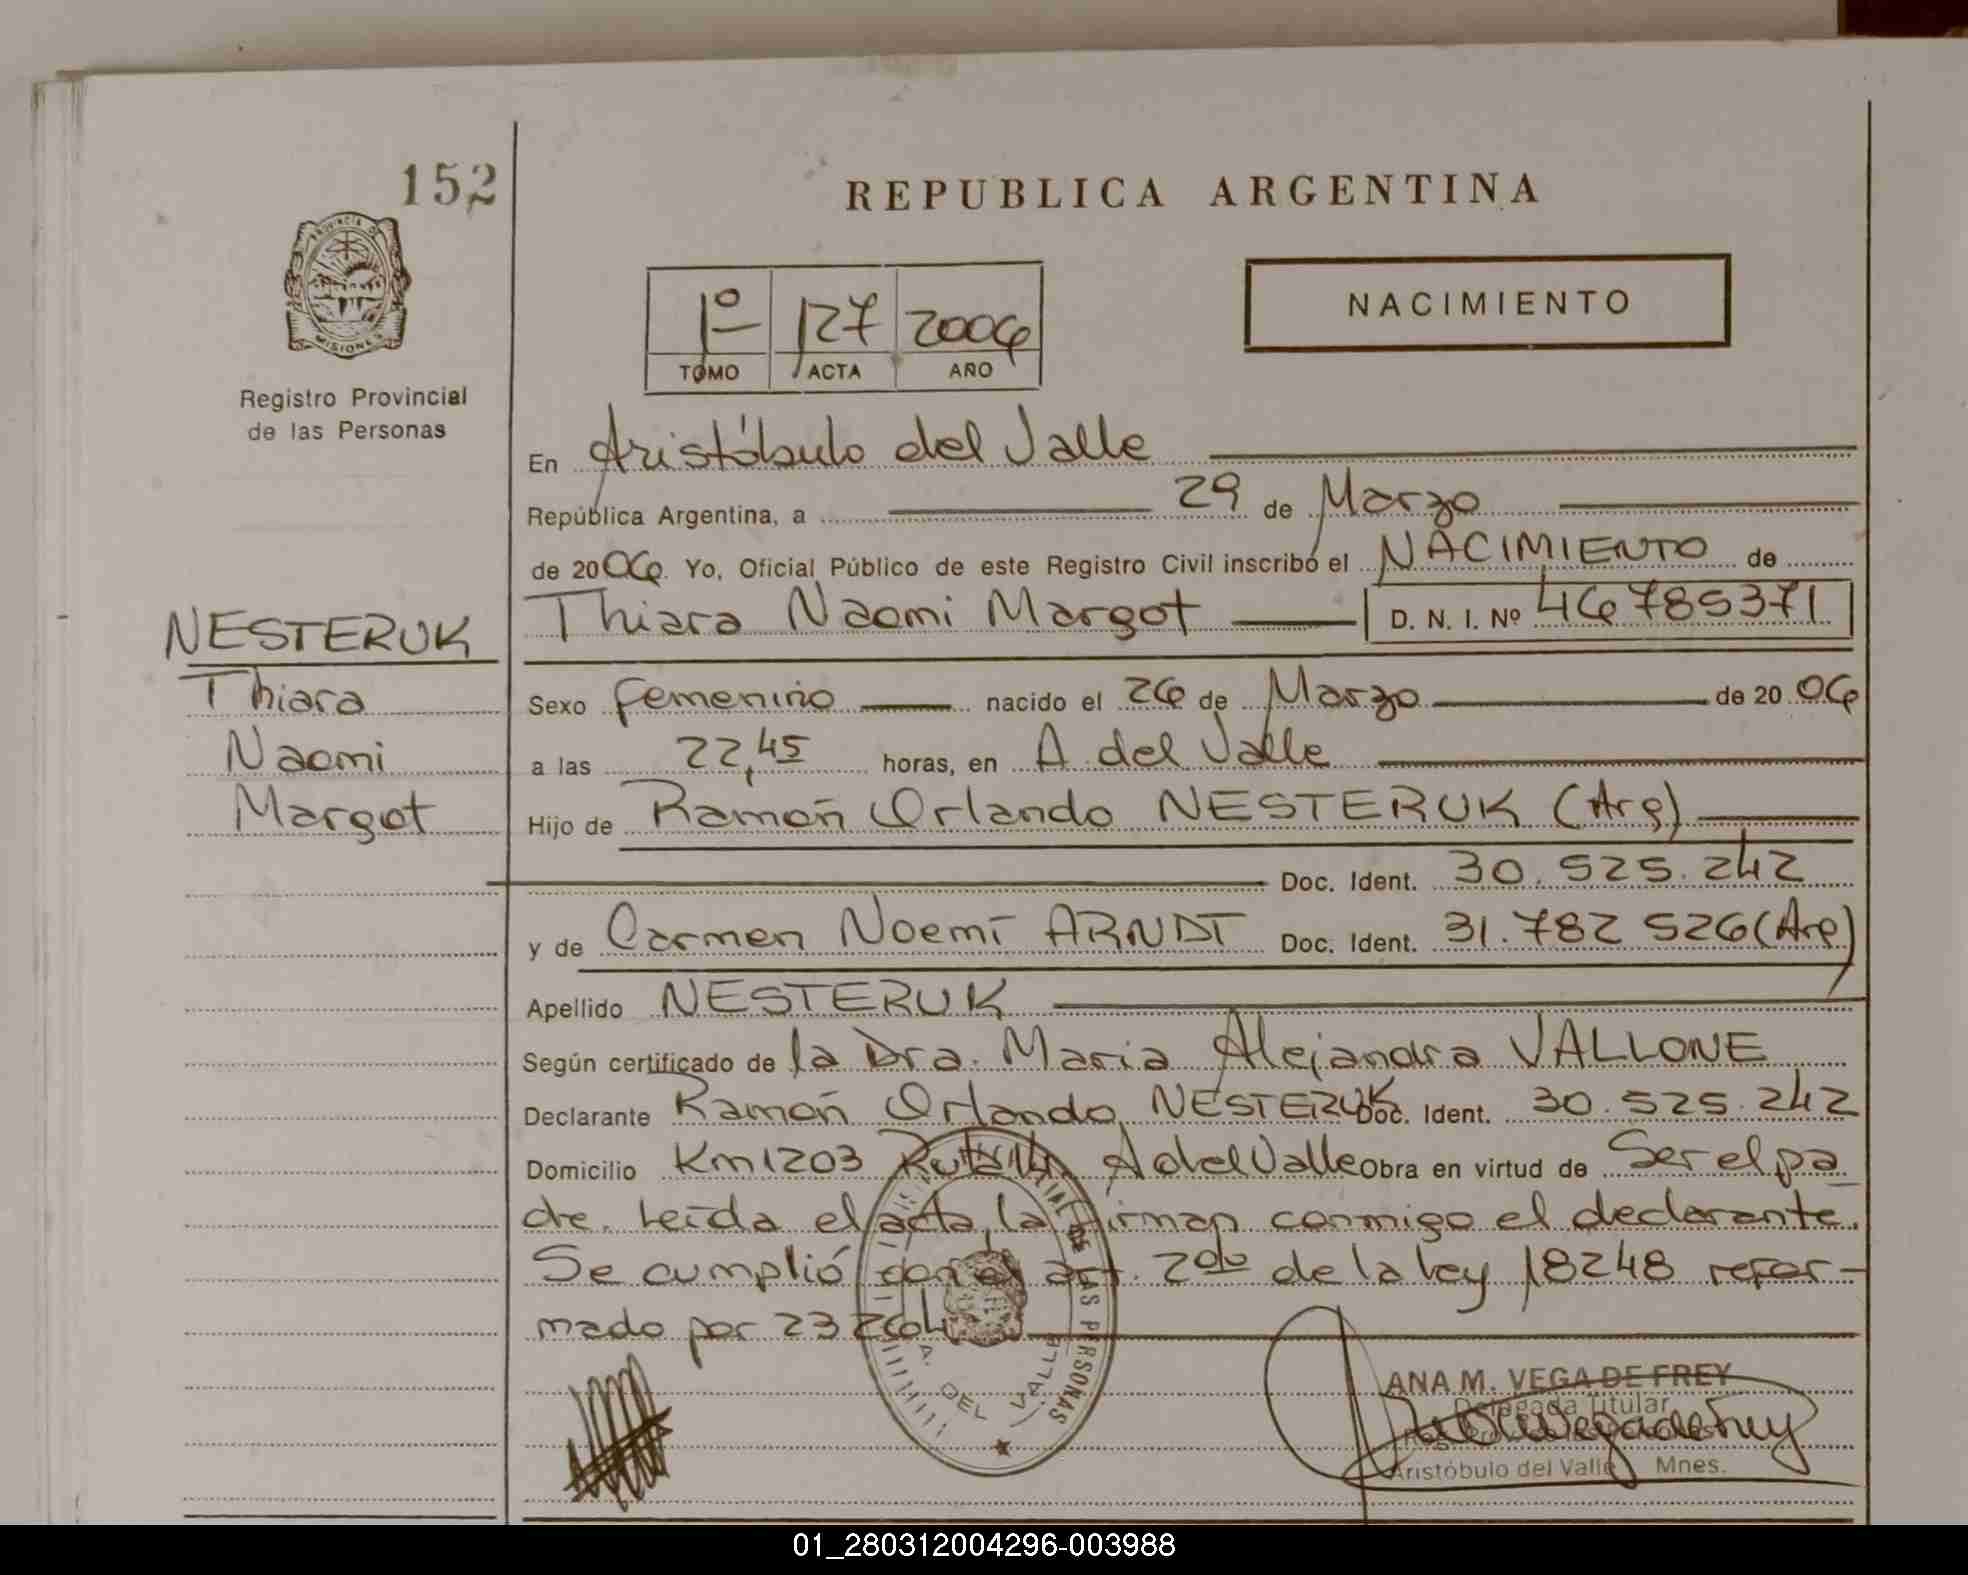 152
REPUBLICA ARGENTINA
PROVINCIA DE
MISIONES
Registro Provincial
de las Personas
1º 127 2006
TOMO ACTA AÑO
NACIMIENTO
En Aristóbulo del Valle
República Argentina, a 29 de Marzo
de 2006. Yo, Oficial Público de este Registro Civil inscribo el NACIMIENTO de
Thiara Naomi Margot D. N. I. Nº 46785371
NESTERUK
Thiara
Naomi
Margot
Sexo femenino nacido el 26 de Marzo de 20 06
a las 22,45 horas, en A del Valle
Hijo de Ramón Orlando NESTERUK (Arg)
Doc. Ident. 30.525.242
y de Carmen Noemí ARNDT Doc. Ident. 31.782 526 (Arg)
Apellido NESTERUK
Según certificado de la Dra. Maria Alejandra VALLONE
Declarante Ramón Orlando NESTERUK Doc. Ident. 30.525.242
Domicilio Km 1203 Ruta A del Valle Obra en virtud de Ser el pa
dre. Leída el acta, la firman conmigo el declarante.
Se cumplió con el art. 2do de la ley 18248 refor-
mado por 23264
DE LAS PERSONAS
A. DEL VALLE
ANA M. VEGA DE FREY
Delegada Titular
Aristóbulo del Valle Mnes.
01_280312004296-003988